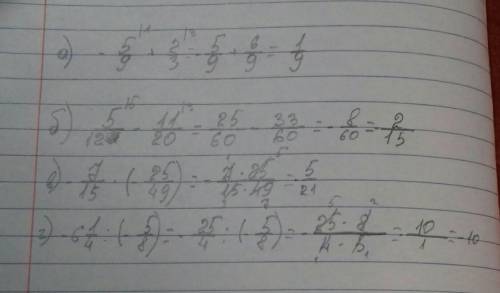 а) -5/9 |1 + 2/3 |3 = -5/9 + 6/9 = 1/9
б) 5/12 |5 - 11/20 |3 = 25/60 - 33/60 = -8/60 = -2/15
в) -7/15 · (-25/49) = -7·25/15·49 = 5/21
г) -6 1/4 : (-5/8) = -25/4 : (-5/8) = -25·8/4·5 = -10/1 = -10